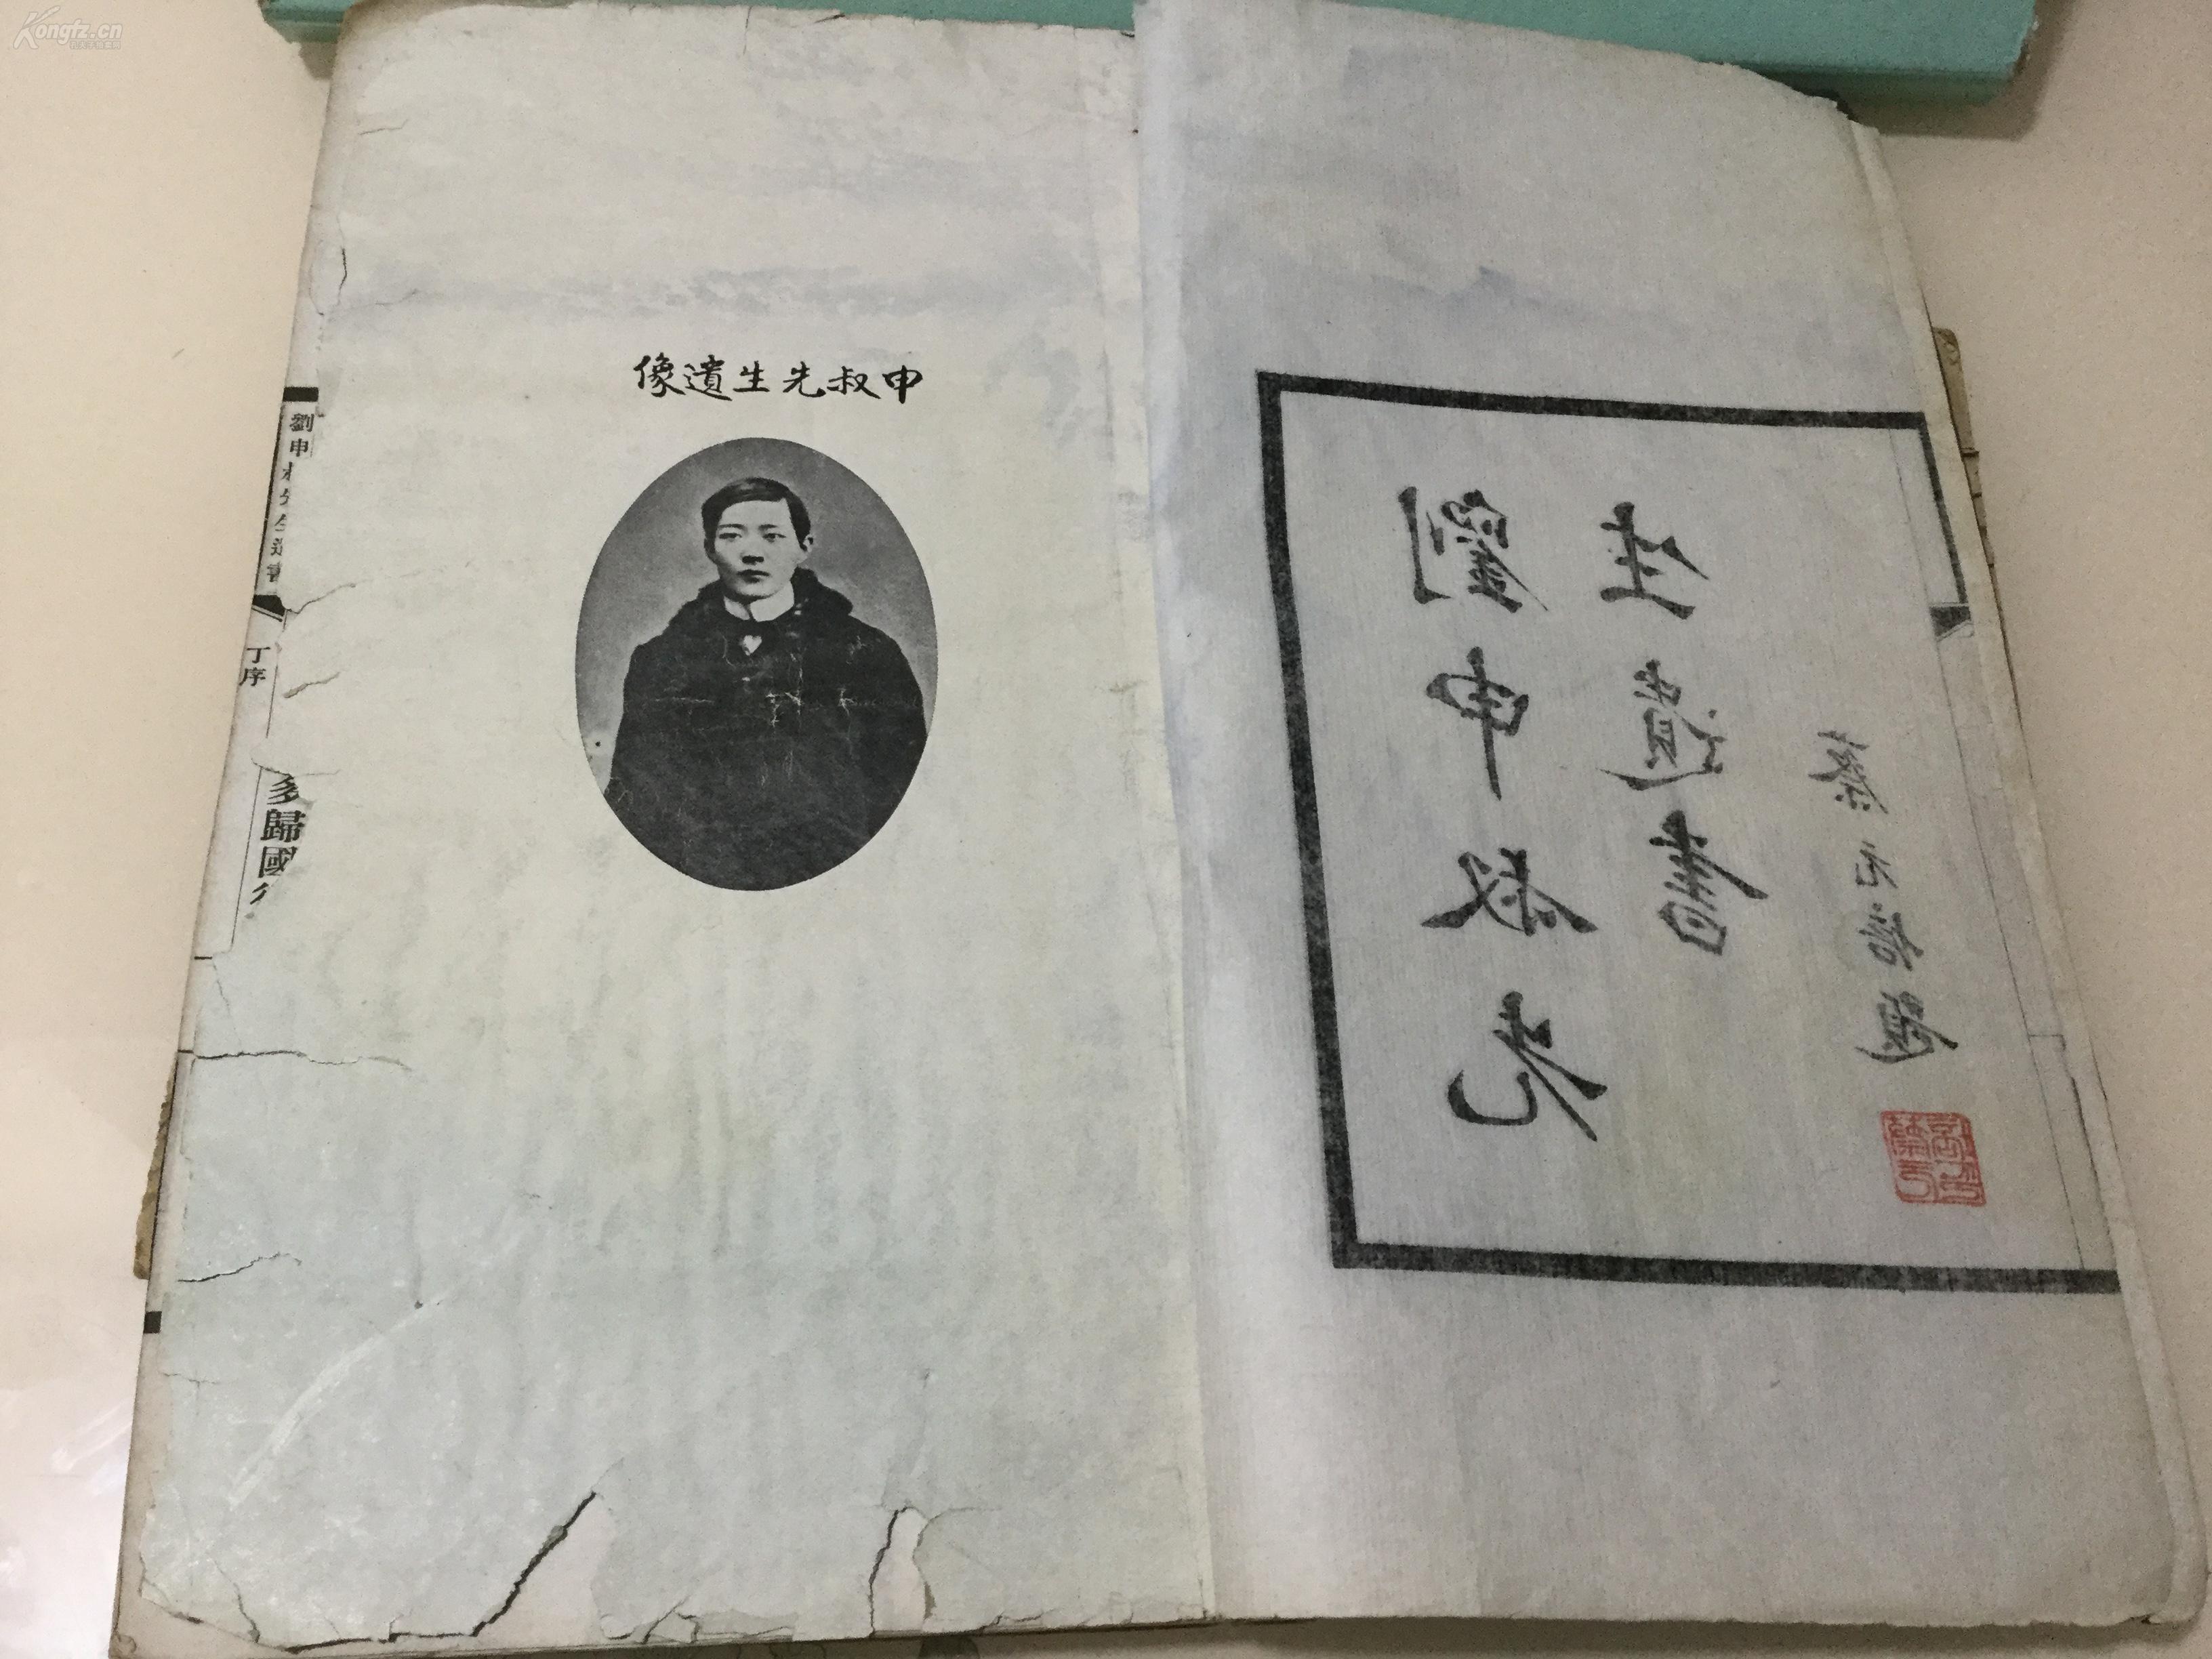 Kongfz.cn
孔夫子旧书网
申叔先生遺像
劉申叔先
生遺書
蔡元培題
劉申叔先生遺書
丁序
多歸國